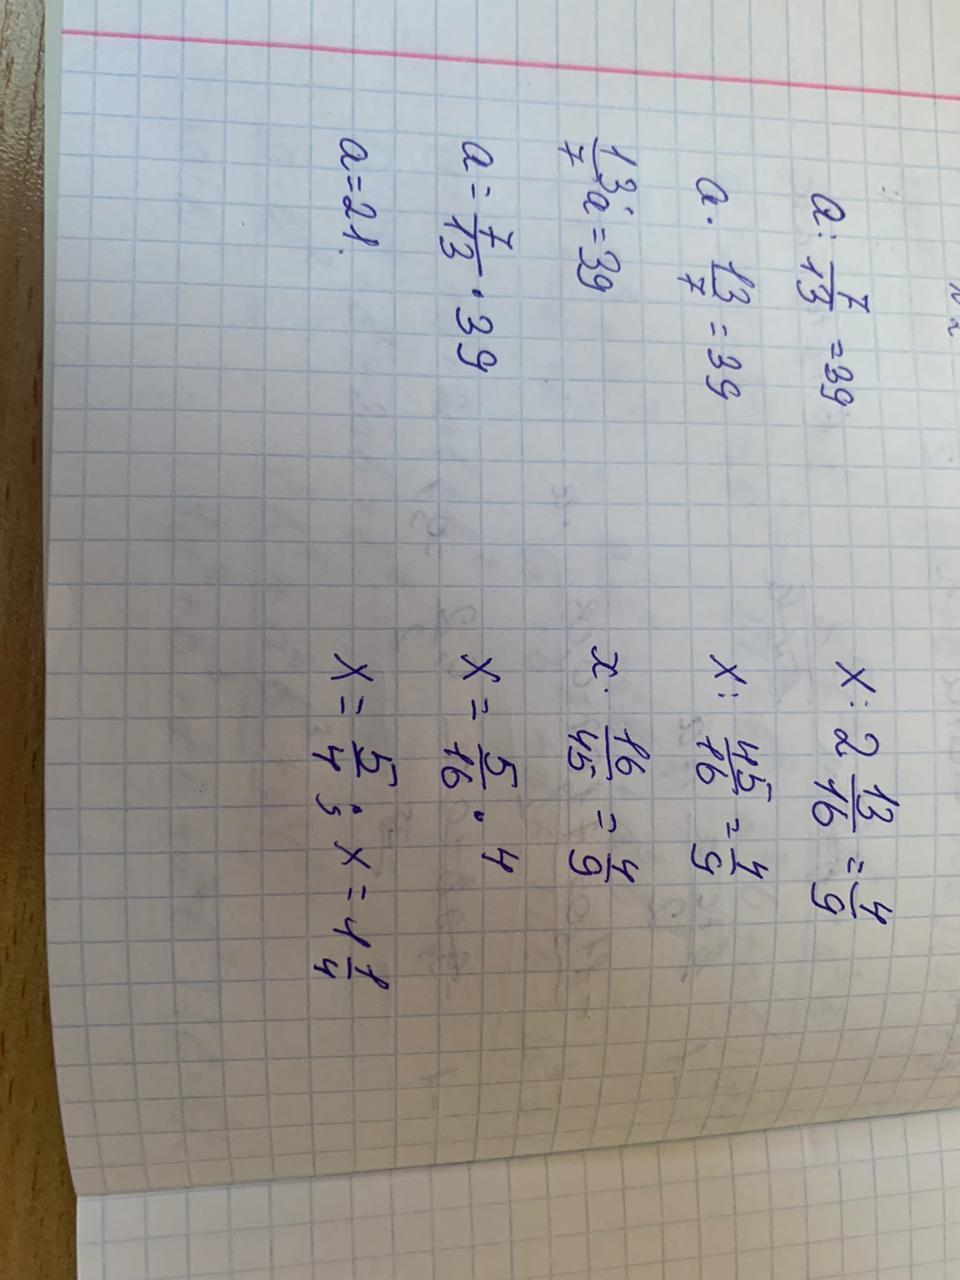 a : 7/13 = 39
a · 13/7 = 39
13/7 a = 39
a = 7/13 · 39
a = 21.
x : 2 13/16 = 4/9
x : 45/16 = 4/9
x · 16/45 = 4/9
x = 5/16 · 4
x = 5/4 ; x = 1 1/4